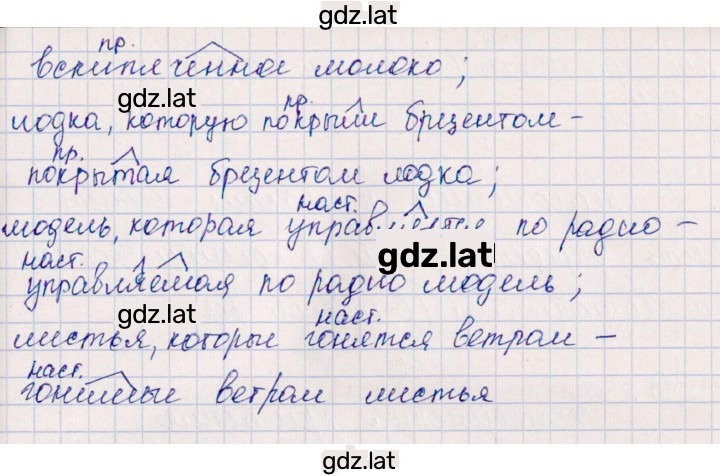 gdz.lat
пр.
вскипячённое молоко;
gdz.lat
пр.
лодка, которую покрыли брезентом –
пр.
покрытая брезентом лодка;
наст.
модель, которая по радио –
gdz.lat
наст.
управляемая по радио модель;
gdz.lat
наст.
листья, которые гонятся ветром –
наст.
гонимые ветром листья
gdz.lat